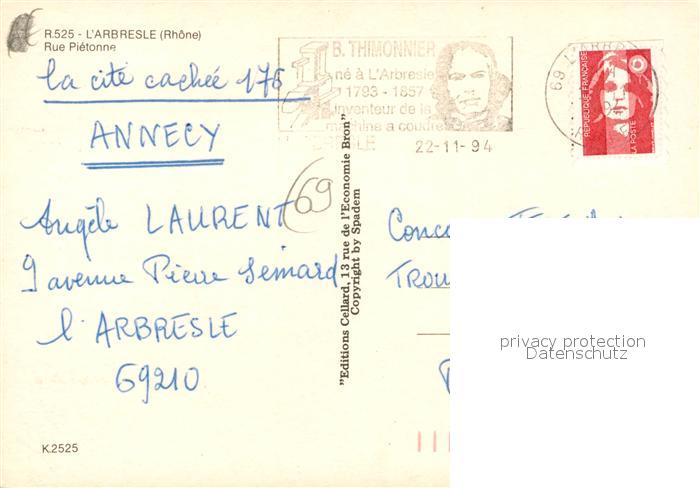 R.525 - L'ARBRESLE (Rhône)
Rue Piétonne
la cité cachée 175
ANNECY
B. THIMONNIER
né à L'Arbresle
1793 - 1857
inventeur de la
machine a coudre
22-11-94
69 L'ARBRESLE
REPUBLIQUE FRANÇAISE
LA POSTE
69
Angèle LAURENT
9 avenue Pierre Semard
l'ARBRESLE
69210
"Editions Cellard, 13 rue de l'Economie Bron"
Copyright by Spadem
privacy protection
Datenschutz
K.2525